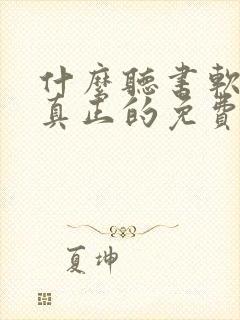 什麼聽書軟
真正的免費
夏坤